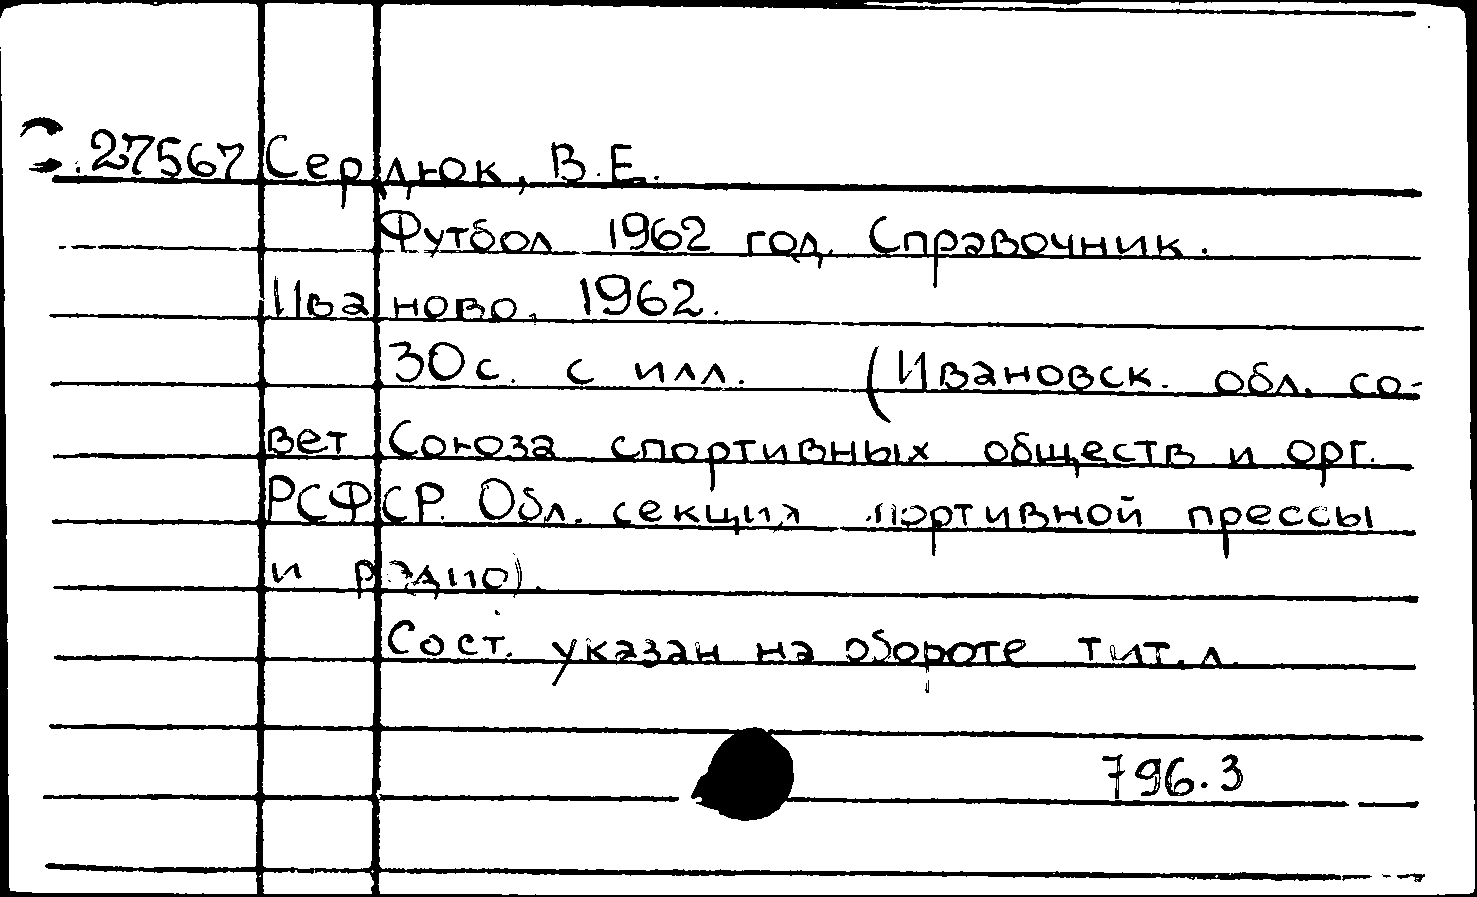 27567 Сердюк, В.Е.
Футбол 1962 год. Справочник.
Иваново, 1962.
30с. с илл. (Ивановск. обл. со-
вет Союза спортивных обществ и орг.
РСФСР. Обл. секция спортивной прессы
и радио).
Сост. указан на обороте тит. л.
796.3